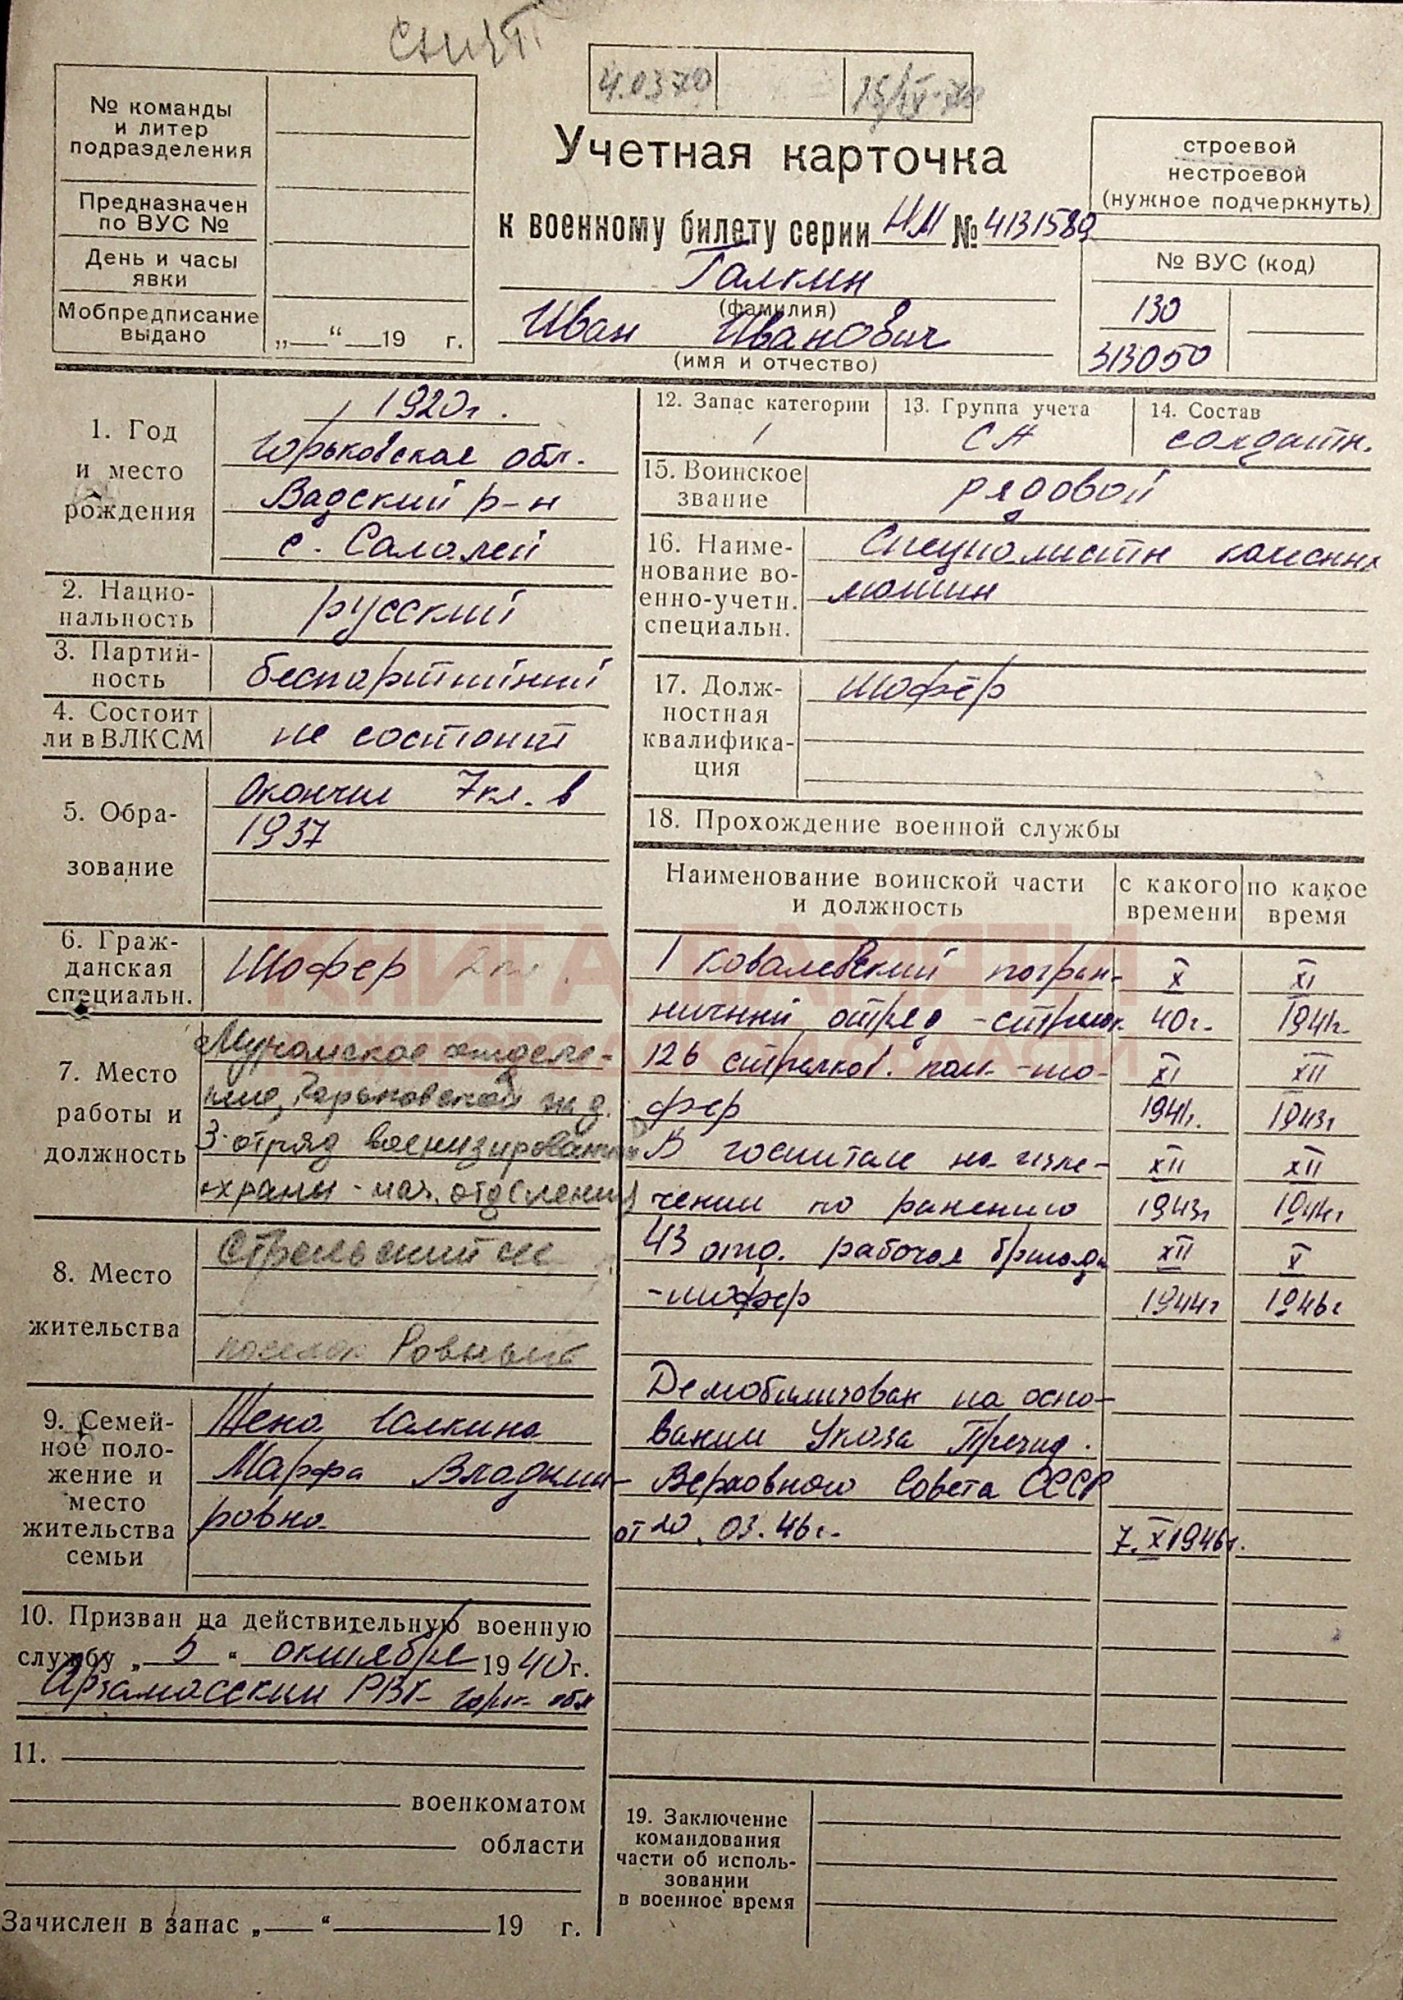 4.03.70
№ команды
и литер
подразделения
Предназначен
по ВУС №
День и часы
явки
Мобпредписание
выдано
„ “ 19 г.
Учетная карточка
к военному билету серии НМ № 4131589
Галкин
(фамилия)
Иван Иванович
(имя и отчество)
строевой
нестроевой
(нужное подчеркнуть)
№ ВУС (код)
130
313050
1. Год
и место
рождения
1920г.
Горьковская обл.
Вадский р-н
с. Салалей
2. Нацио-
нальность
русский
3. Партий-
ность
беспартийный
4. Состоит
ли в ВЛКСМ
не состоит
5. Обра-
зование
Окончил 7кл. в
1937
6. Граж-
данская
специальн.
Шофер 2 кл.
7. Место
работы и
должность
Муромское отделе-
ние, Горьковской ж д.
3-отряд военизированной
охраны - нач. отделения
8. Место
жительства
поселок Ровный
9. Семей-
ное поло-
жение и
место
жительства
семьи
Жена Галкина
Марфа Владими-
ровна
10. Призван на действительную военную
службу „ 5 “ октября 1940 г.
Арзамасский РВК Горьк. обл
11.
военкоматом
области
Зачислен в запас „ “ 19 г.
12. Запас категории
1
13. Группа учета
СА
14. Состав
солдатск.
15. Воинское
звание
рядовой
16. Наиме-
нование во-
енно-учетн.
специальн.
Специалисты колесных
машин
17. Долж-
ностная
квалифика-
ция
шофёр
18. Прохождение военной службы
Наименование воинской части
и должность
с какого
времени
по какое
время
1 Ковалевский погран- X XI
ничный отряд -стрелок 40г. 1941г.
126 стрелков. полк -шо- XI XII
фер 1941г. 1943г
В госпитале на изле- XII XII
чении по ранению 1943г 1944г
43 отд. рабочая бригада XII V
-шофер 1944г 1946г
Демобилизован на осно-
вании Указа Презид.
Верховного Совета СССР
от 20.03.46г. 7.X 1946г.
19. Заключение
командования
части об исполь-
зовании
в военное время
КНИГА ПАМЯТИ
НИЖЕГОРОДСКОЙ ОБЛАСТИ